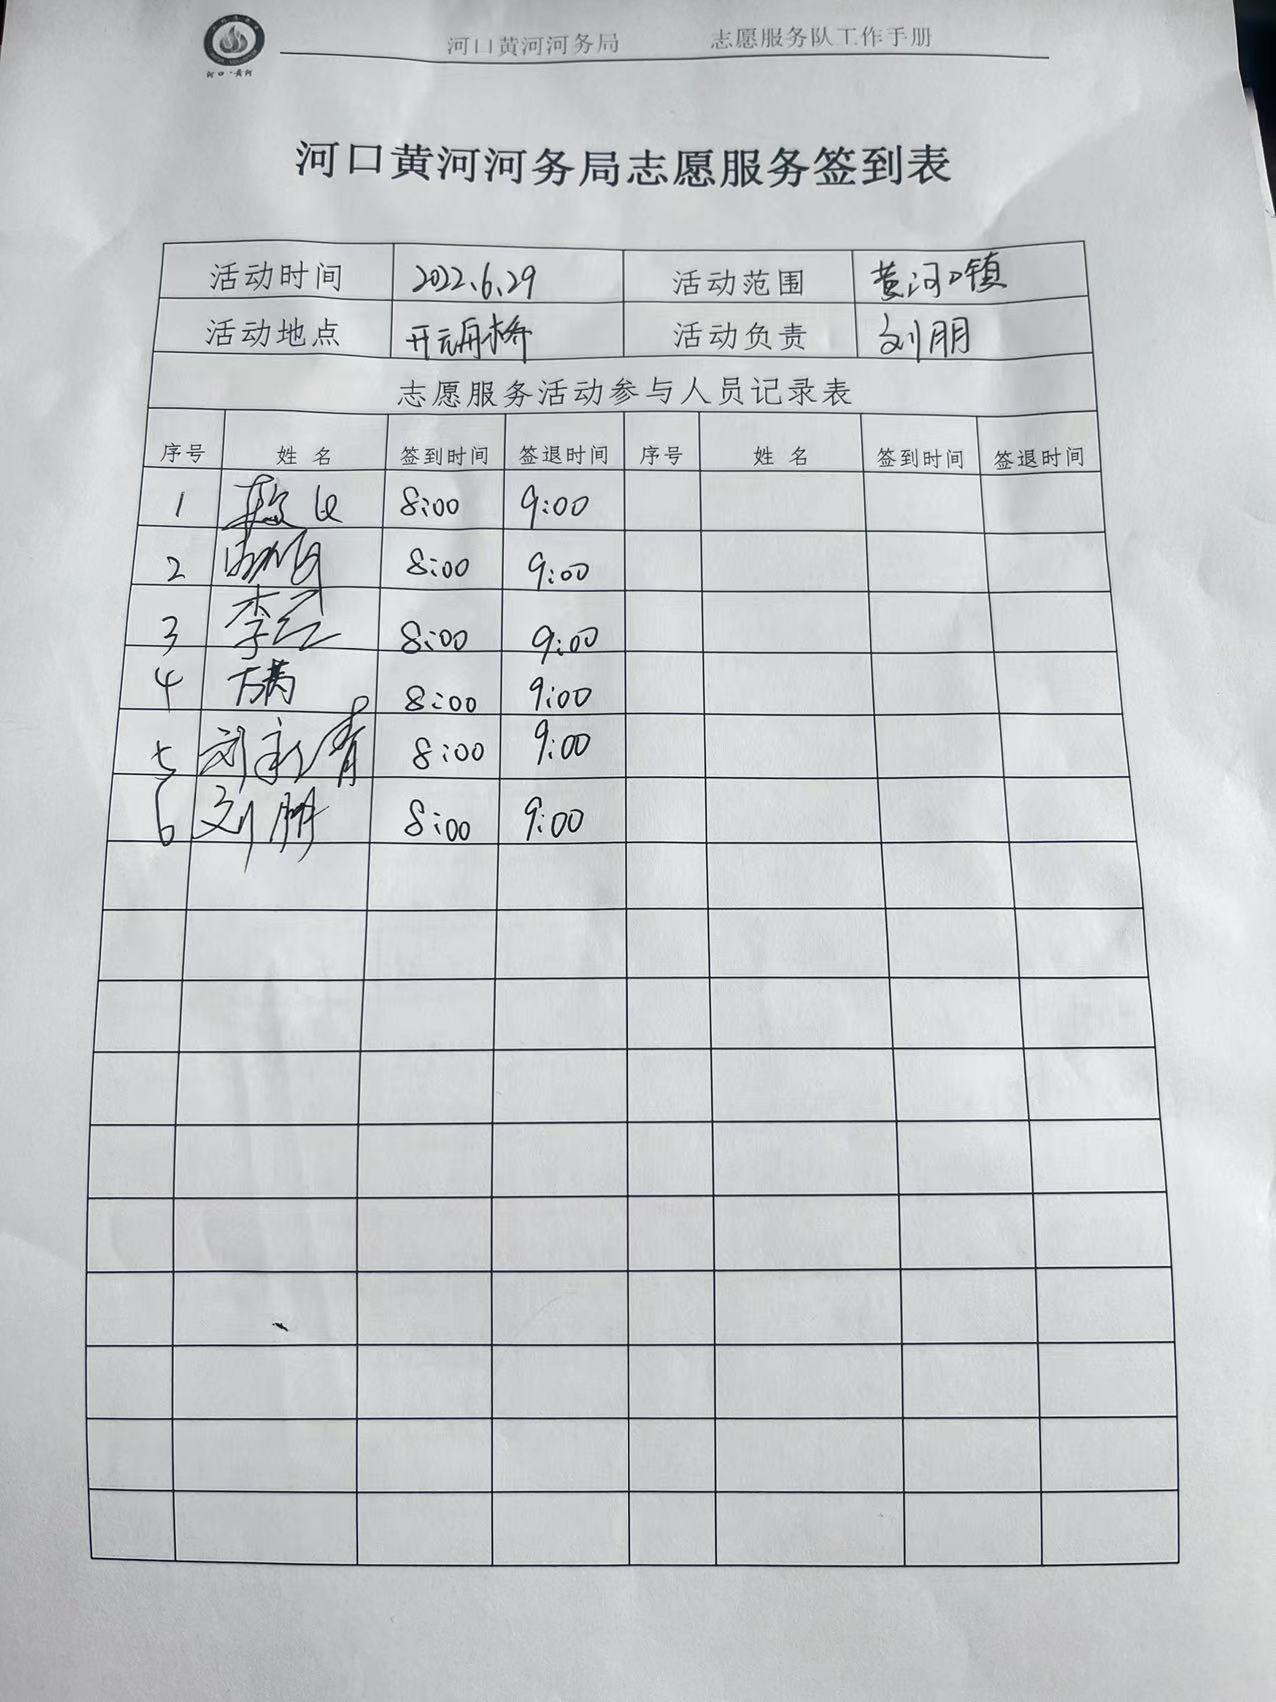 河口·黄河
河口黄河河务局 志愿服务队工作手册
河口黄河河务局志愿服务签到表
活动时间 2022.6.29 活动范围 黄河口镇
活动地点 开元舟桥 活动负责 刘朋
志愿服务活动参与人员记录表
序号 姓名 签到时间 签退时间 序号 姓名 签到时间 签退时间
1 8:00 9:00
2 8:00 9:00
3 李云 8:00 9:00
4 8:00 9:00
5 刘新青 8:00 9:00
6 刘朋 8:00 9:00